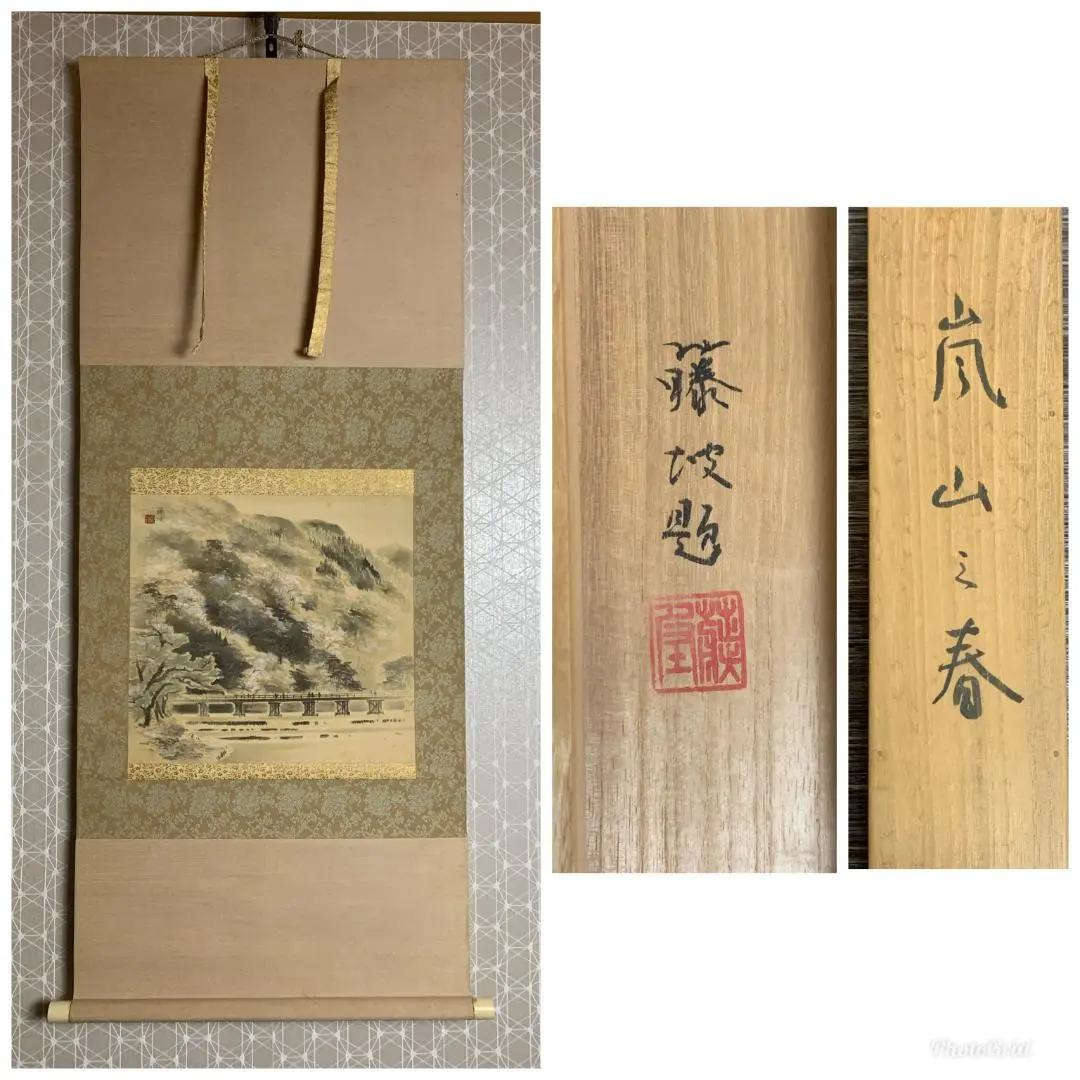 藤坡題
嵐山之春
PhotoGrid